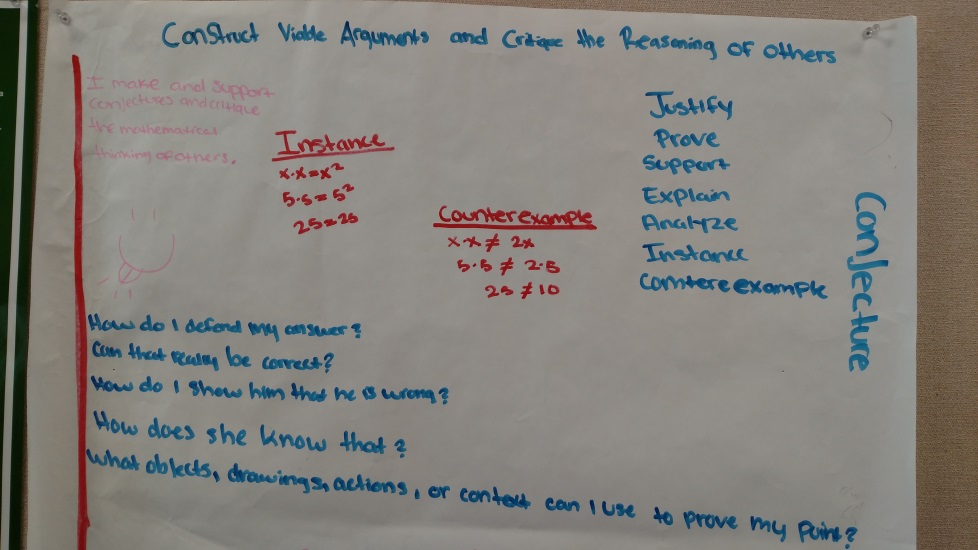 Construct Viable Arguments and Critique the Reasoning of others
I make and support
conjectures and critique
the mathematical
thinking of others.
Instance
x·x=x²
5·5=5²
25=25
Counterexample
x·x≠ 2x
5·5 ≠ 2·5
25 ≠ 10
Justify
Prove
Support
Explain
Analyze
Instance
Comtereexample
Conjecture
How do I defend my answer?
Can that really be correct?
How do I show him that he is wrong?
How does she know that?
What objects, drawings, actions, or context can I use to prove my point?